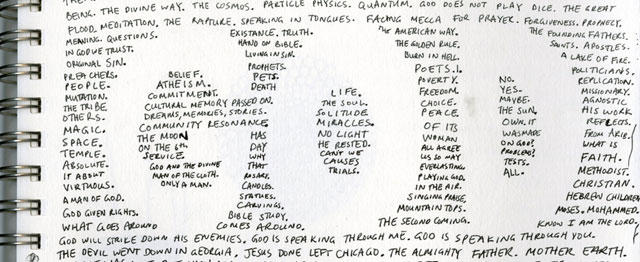 BEING. THE DIVINE WAY. THE COSMOS. PARTICLE PHYSICS. QUANTUM. GOD DOES NOT PLAY DICE. THE GREAT
FLOOD. MEDITATION. THE RAPTURE. SPEAKING IN TONGUES. FACING MECCA FOR PRAYER. FORGIVENESS. PROPHECY.
MEANING. QUESTIONS. EXISTENCE. TRUTH. THE AMERICAN WAY. THE FOUNDING FATHERS.
IN GOD WE TRUST. HAND OF BIBLE. THE GOLDEN RULE. SAINTS. APOSTLES.
ORIGINAL SIN. LIVING IN SIN. BURN IN HELL. A LAKE OF FIRE.
PREACHERS. BELIEF. PROPHETS. POETS. I. POLITICIANS.
PEOPLE. ATHEISM. PETS. POVERTY. NO. REPLICATION.
MUTATION. COMMITMENT. DEATH LIFE. FREEDOM. YES. MISSIONARY.
THE TRIBE CULTURAL MEMORY PASSED ON. THE SOUL. CHOICE. MAYBE. AGNOSTIC
OTHERS. DREAMS, MEMORIES, STORIES. SOLITUDE PEACE. THE SUN. HIS WORK
MAGIC. COMMUNITY RESONANCE MIRACLES. OF ITS OWN IT REFLECTS.
SPACE. THE MOON HAS NO LIGHT WOMAN WAS MADE FROM ARIE.
TEMPLE. ON THE 6th DAY HE RESTED. ALL AGREE ON GOD? WHAT IS
ABSOLUTE. SERVICE. WHY CAN'T WE US SO MAY PROBLEM? FAITH.
IT ABOUT GOD AND THE DIVINE THAT CAUSES EVERLASTING TESTS. METHODIST.
VIRTUOUS. MAN OF THE CLOTH. ROSARY. TRIALS. PLAYING GOD. ALL. CHRISTIAN.
A MAN OF GOD. ONLY A MAN. CANDLES. IN THE AIR. HEBREW CHILDREN
GOD GIVEN RIGHTS. STATUES. SINGING PRAISE,
CARVINGS. MOUNTAIN TOPS. MOSES. MOHAMMED.
WHAT GOES AROUND BIBLE STUDY. THE SECOND COMING. KNOW I AM THE LORD,
COMES AROUND.
GOD WILL STRIKE DOWN HIS ENEMIES. GOD IS SPEAKING THROUGH ME. GOD IS SPEAKING THROUGH YOU.
THE DEVIL WENT DOWN IN GEORGIA. JESUS DONE LEFT CHICAGO. THE ALMIGHTY FATHER. MOTHER EARTH.